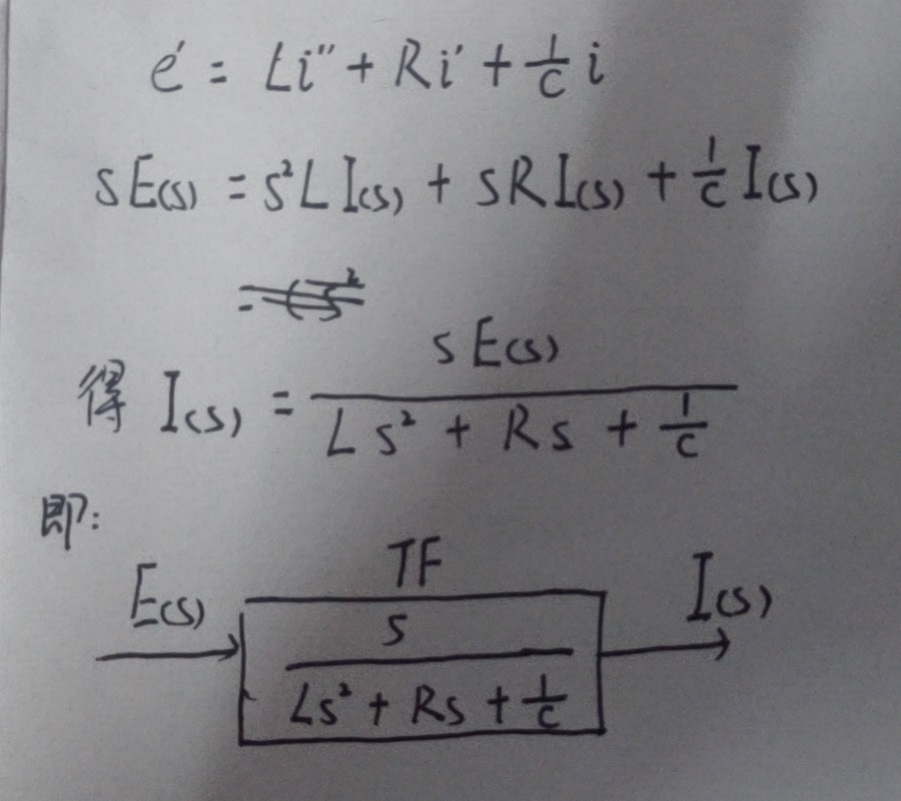 e' = Li'' + Ri' + 1/C i
sE(s) = s²LI(s) + sRI(s) + 1/C I(s)
= (s²
得 I(s) = sE(s) / (Ls² + Rs + 1/C)
即:
TF
E(s) s / (Ls² + Rs + 1/C) I(s)